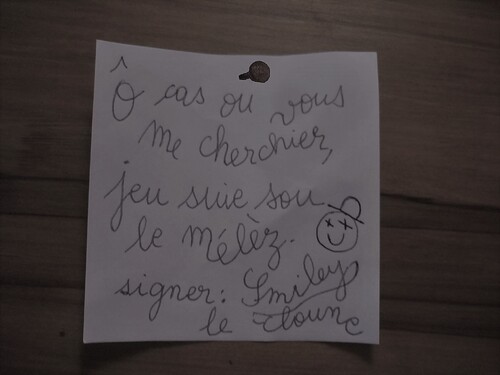 Ô cas ou vous
me cherchier,
jeu suie sou
le mélèz.
signer: Smiley
le cloune